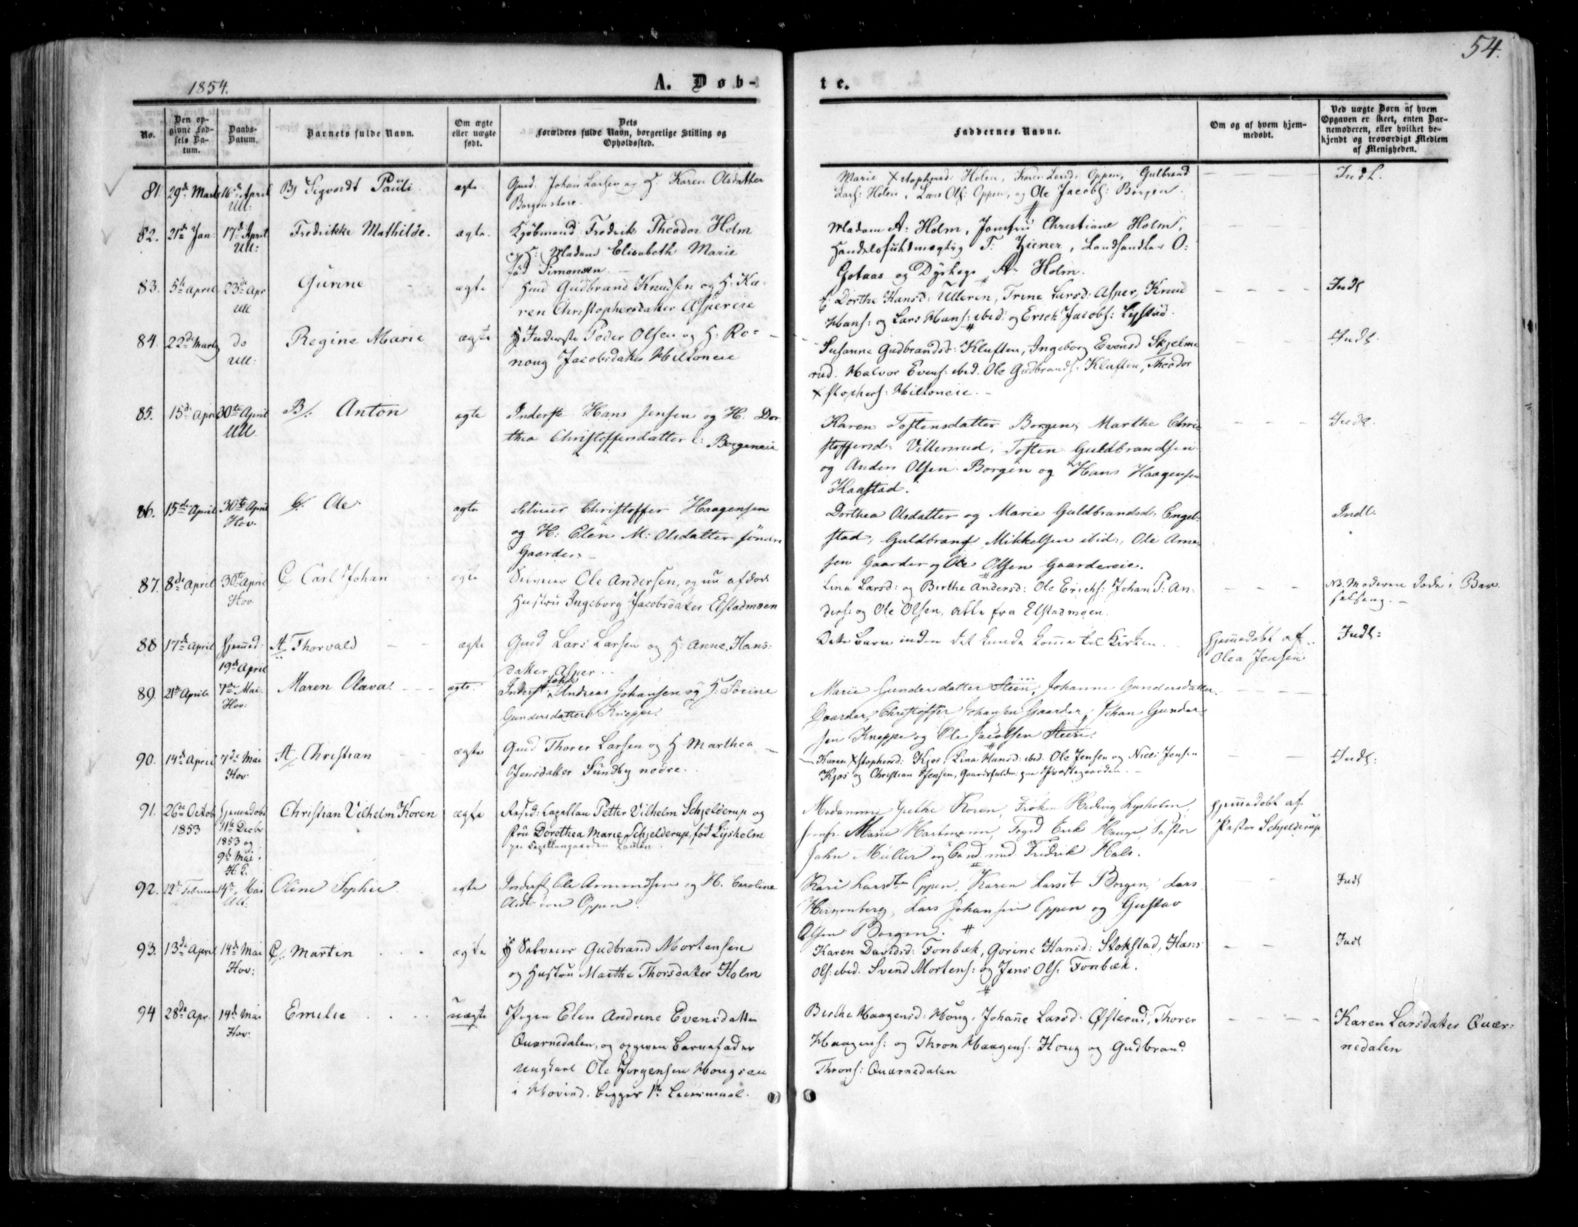 54.
1854.
A. Døb-
te.
No.
Den opgivne Fødsels Datum.
Daabs-Datum.
Barnets fulde Navn.
Om ægte eller uægte født.
Dets Forældres fulde Navn, borgerlige Stilling og Opholdssted.
Faddernes Navne.
Om og af hvem hjemmedøbt.
Ved uægte Børn af hvem Opgaven er skeet, enten Barnemoderen, eller hvilket bekjendt og troværdigt Medlem af Menigheden.
81 29de Marts 16de April Ull: Sigvardt Pauli ægte Gaard. Johan Larsen og H. Karen Olsdatter
Borgen
Marie Xstophersd: Holm, Oppen, Gulbrand
Lars: Holm, Lars Ols: Oppen, og Ole Jacobs: Borgen.
Indl.
82. 21de Jan 17de April Ull: Fredrikke Mathilde. ægte. Kjøbmand Fredrik Theodor Holm
og H: Madame Elisabeth Marie
fød Simonsen
Madam A: Holm, Jomfru Christiane Holm,
Handelsfuldmægtig T. Ziener, Landhandler O:
Gotaas og Dyrlæge A. Holm.
83. 5te April 23de Apr Ull Gurine ægte Huusm Gudbrand Knudsen og H: Ka-
ren Christophersdatter Aspereie
Dorthe Hansd: Ulleren, Trine Larsd: Asper, Knud
Hans: og Lars Hans: ibid: og Erich Jacobs: Lystad.
Indl
84. 22de Marts do Ull: Regine Marie ægte Inderste Peder Olsen og H. Ro-
noug Jacobsdatter Miltoneie
Susanne Gudbrandsd: Kluften, Ingeborg Evensd Skjelme
rud. Halvor Evens: ibid. Ole Gudbrands: Kluften, Theodor
Xstophers: Miltoneie.
Indl.
85. 15de Apr 30te April Ull B/. Anton ægte Inderst Hans Jensen og H: Dor
thea Christoffersdatter Borgeneie
Karen Tostensdatter Borgen, Marthe Chri
stoffersd: Villerud, Tosten Guldbrandsen
og Anders Olsen Borgen og Hans Haagensen
Kaastad.
Indl.
86. 15de April 30te April Hov. Ole ægte Selveier Christoffer Haagensen
og H: Elen M: Olsdatter søndre
Gaarder
Dorthea Olsdatter og Marie Guldbrandsd: Engel-
stad, Guldbrand Mikkelsen ibid:, Ole Arne
sen Gaarder og Ole Olsen Gaardereie.
Indl.
87. 8de April 30te April Hov C Carl Johan ægte Selveier Ole Andersen, og nu afdøde
Hustru Ingeborg Jacobsdatter Elstadmoen
Lina Larsd: og Birthe Andersd: Ole Erichs: Johan P: An-
ders: og Ole Olsen, alle fra Elstadmoen.
NB. Moderen døde i Bar
selseng.
88 17de April Hjemmed: 19de April A/ Thorvald ægte Gaard Lars Larsen og H. Anne Hans-
datter Asper
Dette Barn inden det kunde komme til Kirken.
Hjemmedøbt af
Olea Jensen
Indl:
89. 21de April 7de Mai Hov. Maren Olava ægte Inderst Andreas Johansen og H: Berine
Gundersdatter Kneppe.
Marie Gundersdatter Steen, Johanne Gundersdatter
Gaarder, Christoffer Gaarder, Johan Gunder-
sen Kneppe og Ole Jacobsen Steen.
90. 14de April 7de Mai Hov A/ Christian ægte Gaard Thorer Larsen og H Marthea
Jensdatter Sundby nedre.
Karen Xstophersd: Kjos, Lina Hansd: ibid: Ole Jensen og Niels Jensen
Kjos og Christian Jensen,
Indl:
91. 26de Octob 1853 Hjemmedøbt 11te Decbr 1853 og 9de Mai H. K. Christian Vilhelm Koren ægte Resid: Capellan Petter Vilhelm Schjelderup og
Fru Dorothea Marie Schjelderup, fød Lysholm
Madamme Grethe Koren, Frøken Hedvig Lysholm,
Marie Erik Hauge, Pastor
John Müller og Cand. med Fredrik Hals.
Hjemmedøbt af
Pastor Schjelderup
92. 12te Februar 14de Mai Ull. Oline Sophie ægte Inderst Ole Amundsen og H. Caroline
Oppen
Kari Larsdt Oppen, Karen Larsdt Borgen, Lars
Lars Johansen Oppen og Gustav
Olsen Borgen.
Indl
93. 13de April 14de Mai Hov: C/ Martin ægte Selveier Gudbrand Mortensen
og Hustru Marthe Thorsdatter Holm
Karen Davidsd: Fonbæk, Gorine Hansd: Stokstad, Hans
Ols: ibid. Svend Mortens: og Jens Ols: Fonbæk.
Indl
94 28de Apr. 14de Mai Hov. Emilie uægte Pigen Elen Andrine Evensdatter
Quærnedalen, og opgiven Barnefader
Ungkarl Ole Jørgensen Hougseie
i Hovind. Begges 1ste Leiermaal.
Birthe Haagensd: Houg, Johanne Larsd: Østerud, Thorer
Haagens: og Thron Haagens: Houg og Gudbrand
Throns: Quærnedalen
Karen Larsdatter Quær-
nedalen